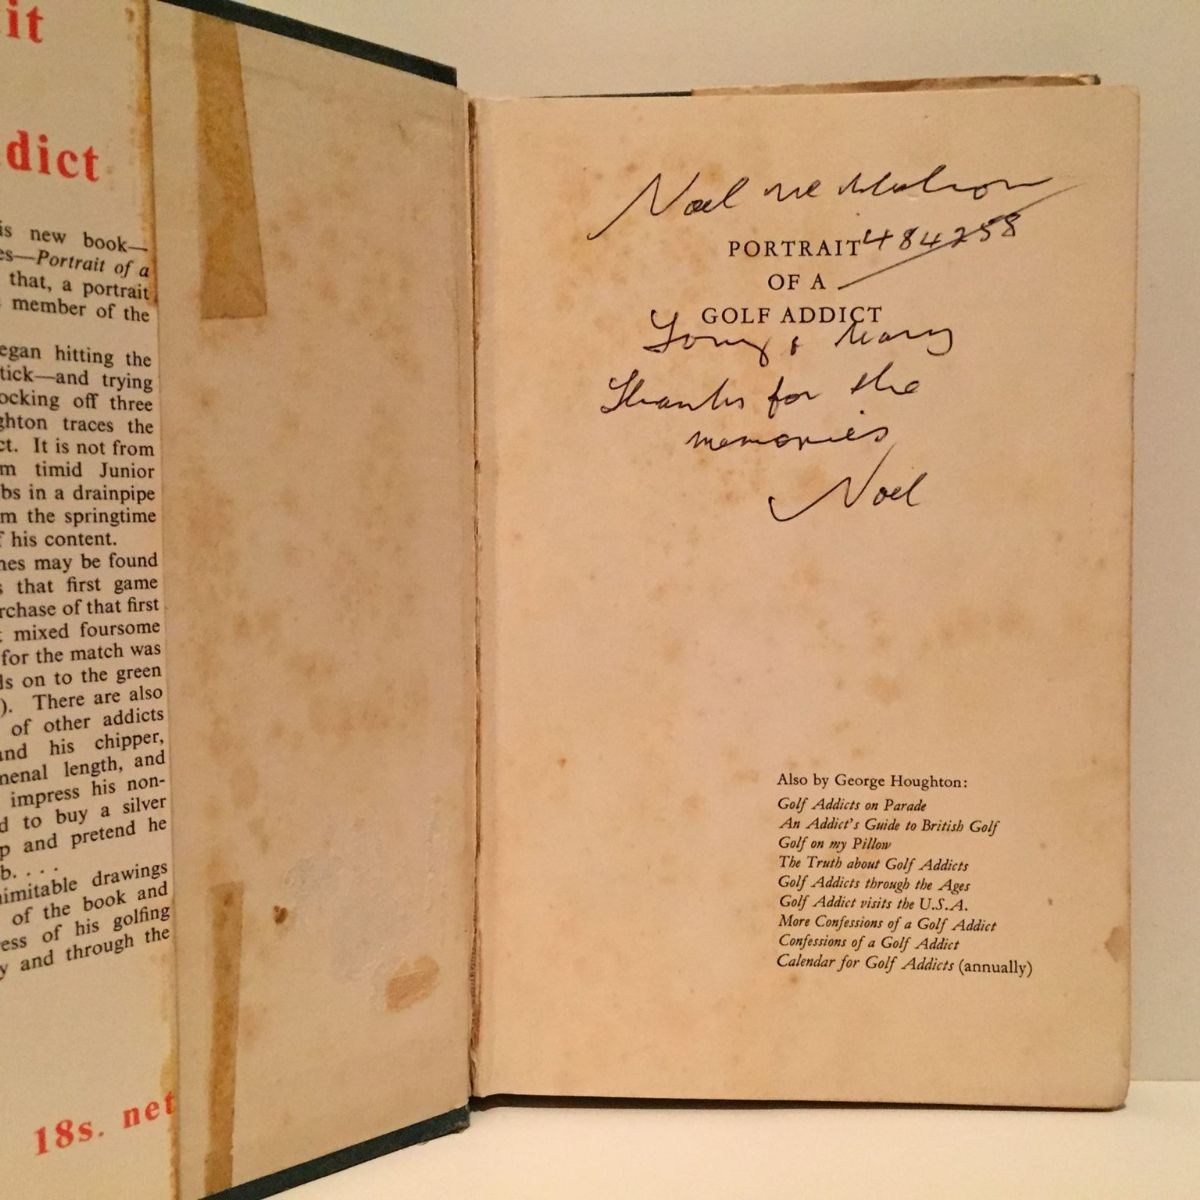 it
dict
is new book—
es—Portrait of a
that, a portrait
member of the
egan hitting the
tick—and trying
ocking off three
ghton traces the
ct. It is not from
m timid Junior
bs in a drainpipe
m the springtime
f his content.
nes may be found
s that first game
rchase of that first
t mixed foursome
for the match was
ls on to the green
). There are also
of other addicts
and his chipper,
menal length, and
impress his non-
d to buy a silver
p and pretend he
b. . . .
nimitable drawings
of the book and
ess of his golfing
y and through the
18s. net
Noel
PORTRAIT 484258
OF A
GOLF ADDICT
Tony & Mary
Thanks for the
memories
Noel
Also by George Houghton:
Golf Addicts on Parade
An Addict's Guide to British Golf
Golf on my Pillow
The Truth about Golf Addicts
Golf Addicts through the Ages
Golf Addict visits the U.S.A.
More Confessions of a Golf Addict
Confessions of a Golf Addict
Calendar for Golf Addicts (annually)